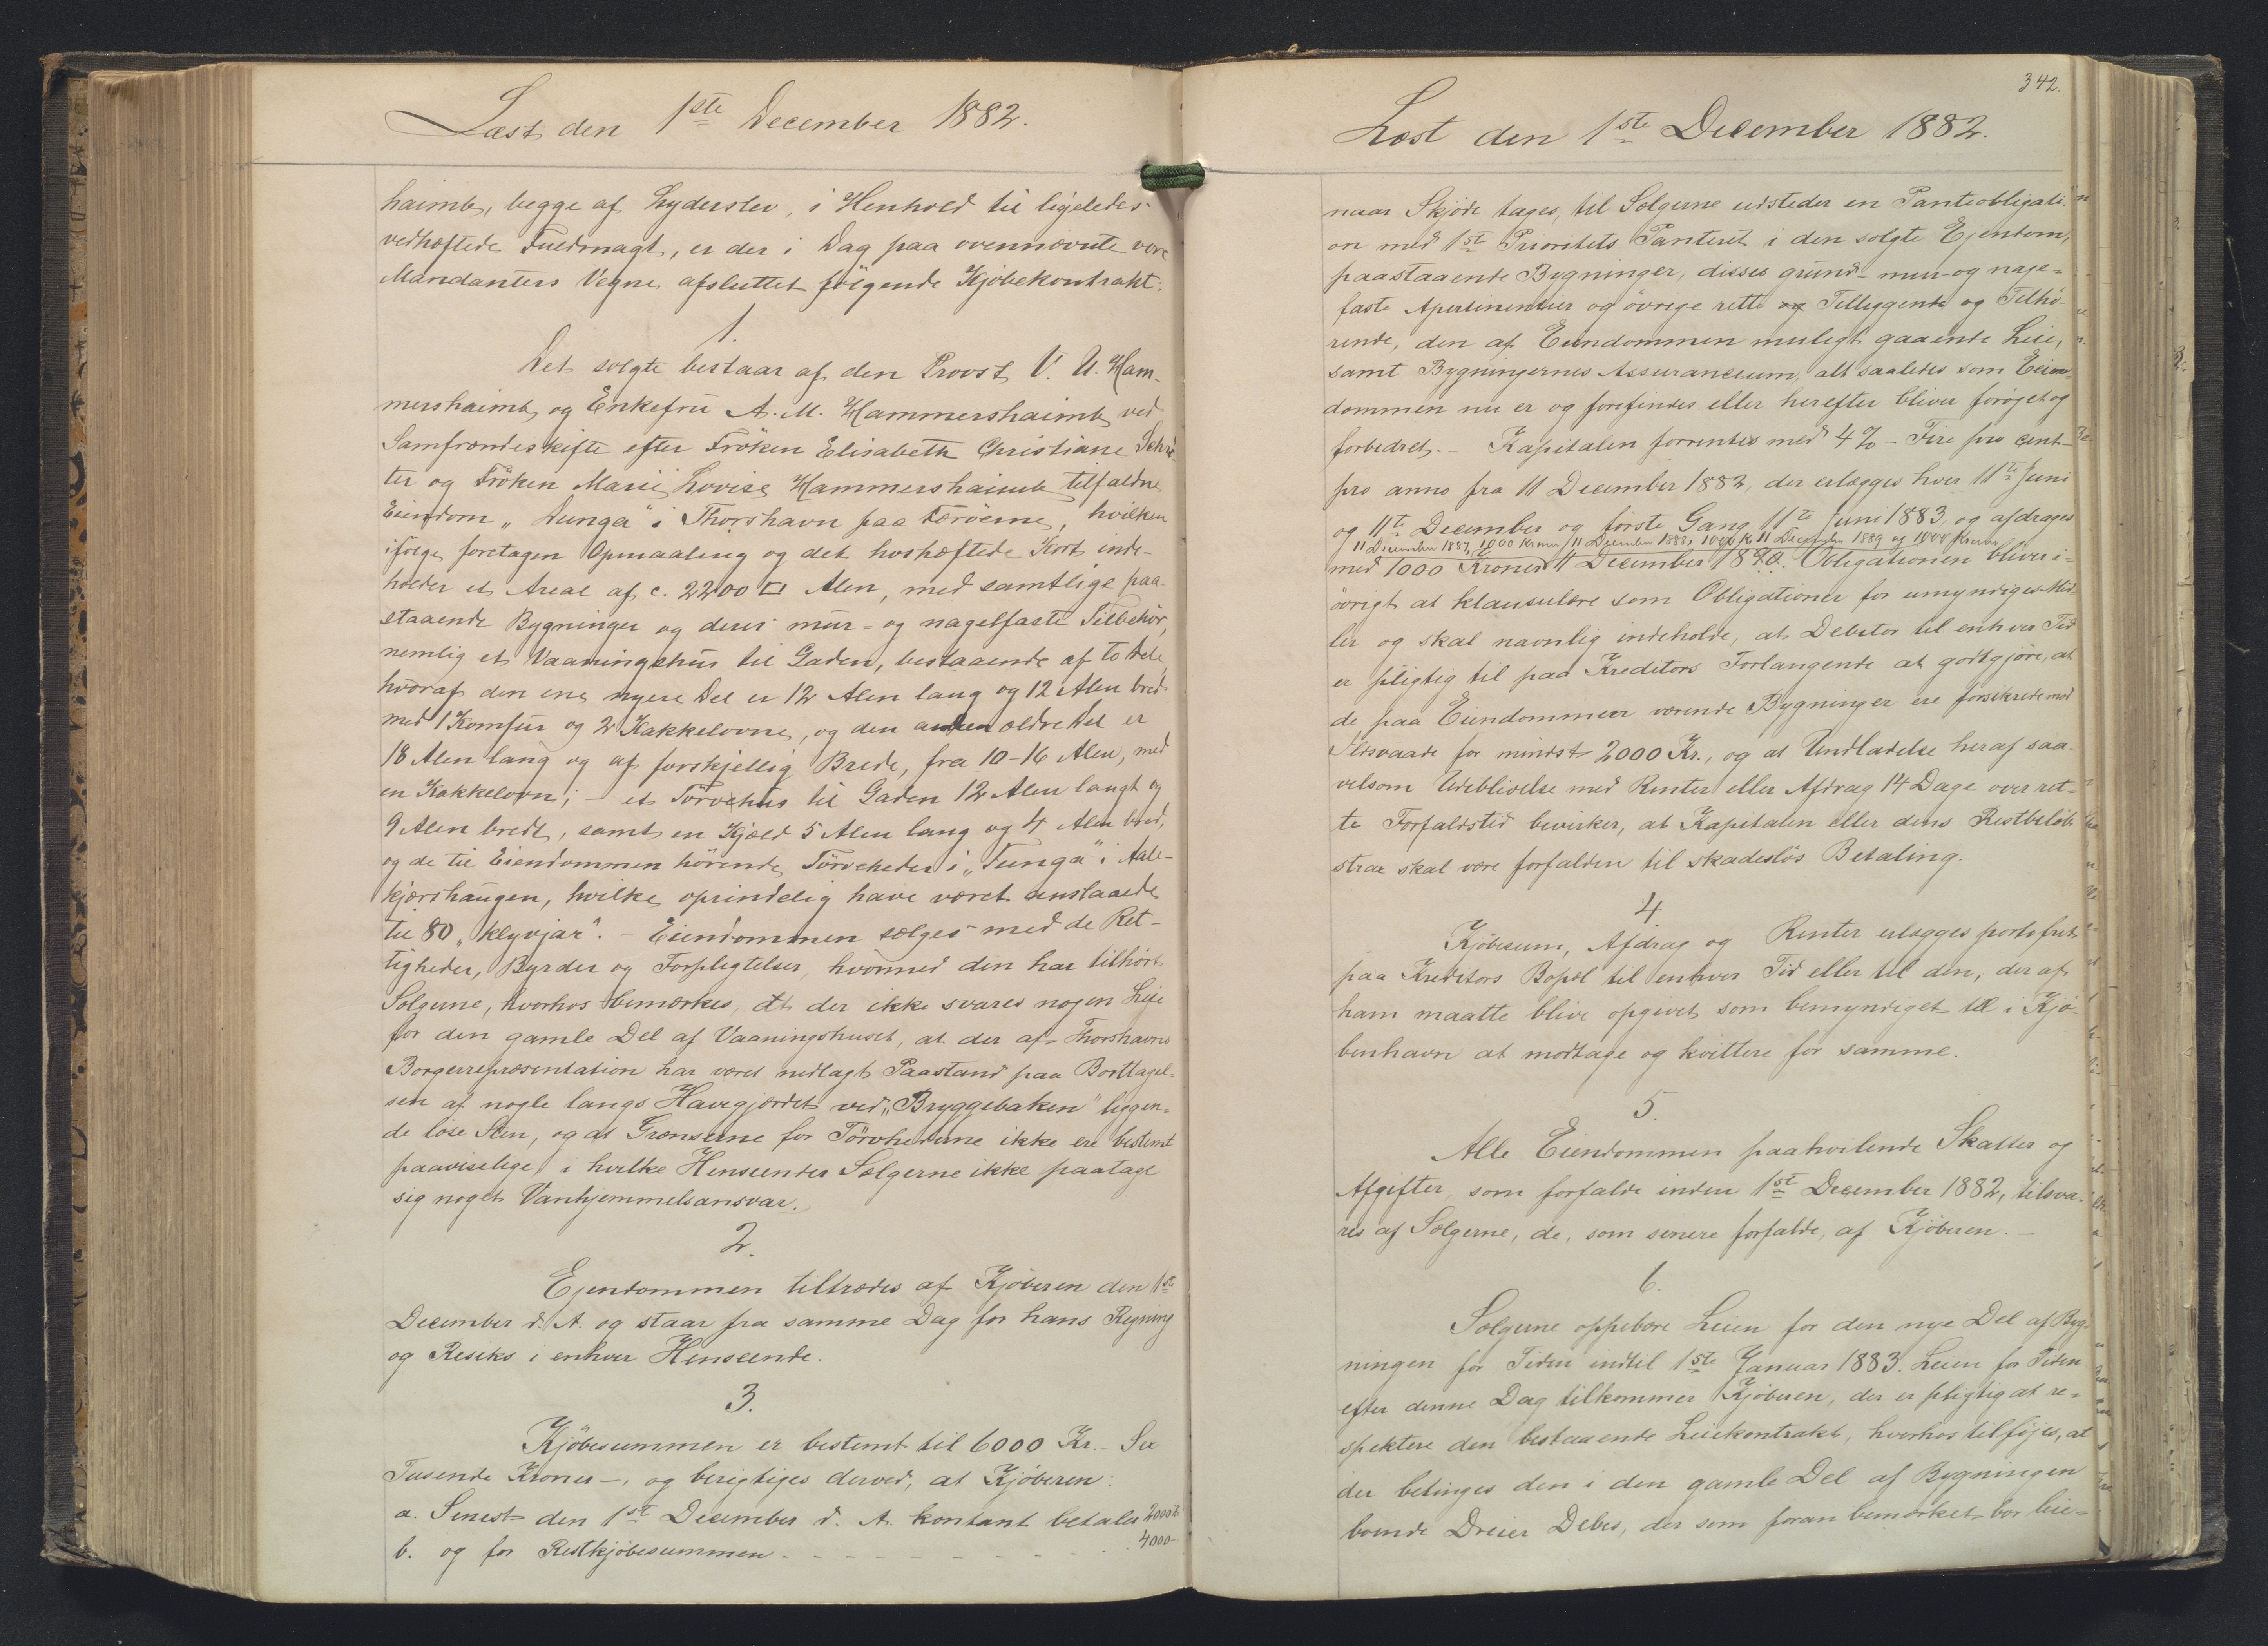 Læst den 1ste December 1882.
haimb, begge af Lyderslev, i Henhold til ligeledes
vedhæftede Fuldmagt, er der i Dag paa ovennævnte vore
Mandanters Vegne afsluttet følgende Kjøbekontrakt:
1.
Det solgte bestaar af den Provst V. U. Ham-
mershaimb og Enkefru A. M. Hammershaimb ved
Samfrændeskifte efter Frøken Elisabeth Christiane Schrø-
ter og Frøken Marie Lovise Hammershaimb tilfaldne
Eiendom "Dunga" i Thorshavn paa Færøerne, hvilken
ifølge foretagen Opmaaling og det hoshæftede Kort inde-
holder et Areal af c. 2200 □ Alen, med samtlige paa-
staaende Bygninger og deres mur- og nagelfaste Tilbehør,
nemlig et Vaaningshus til Gaden, bestaaende af to Dele,
hvoraf den ene nyere Del er 12 Alen lang og 12 Alen bred
med 1 Komfur og 2 Kakkelovne, og den anden ældre Del er
18 Alen lang og af forskjellig Brede, fra 10-16 Alen, med
en Kakkelovn; - et Tørvehus til Gaden 12 Alen langt og
9 Alen bredt, samt en Kjæld 5 Alen lang og 4 Alen bred,
og de til Eiendommen hørende Tørveheder i "Tunga" i Aale-
kjærshaugen, hvilke oprindelig have været anslaaede
til 80 "klyvjar". - Eiendommen sælges med de Ret-
tigheder, Byrder og Forpligtelser, hvormed den har tilhørt
Sælgerne, hvorhos bemærkes, at der ikke svares nogen Leie
for den gamle Del af Vaaningshuset, at der af Thorshavns
Borgerrepræsentation har været nedlagt Paastand paa Borttagel-
sen af nogle langs Havegjærdet ved "Bryggebaken" liggen-
de løse Sten, og at Grænserne for Tørvhederne ikke ere bestemt
paaviselige, i hvilke Henseender Sælgerne ikke paatage
sig noget Vanhjemmelsansvar.
2.
Ejendommen tiltrædes af Kjøberen den 1ste
December d. A. og staar fra samme Dag for hans Regning
og Resiko i enhver Henseende.
3.
Kjøbesummen er bestemt til 6000 Kr. - Sex
Tusende Kroner -, og berigtiges derved, at Kjøberen:
a. Senest den 1st December d. A. kontant betaler 2000 k
b. og for Restkjøbesummen - - - - - - - - - - 4000 -
342.
Læst den 1ste December 1882.
naar Skjøde tages, til Sælgerne udsteder en Panteobligati-
on med 1st Prioritets Panteret i den solgte Ejendom,
paastaaende Bygninger, disses grund- mur- og nagel-
faste Apertinentier og øvrige rette og Tilliggende og Tilhø-
rende, den af Eiendommen muligt gaaende Leie,
samt Bygningernes Assurancesum, alt saaledes som Eien-
dommen nu er og forefindes eller herefter bliver forøget og
forbedret. - Kapitalen forrentes med 4% - Fire pro cent -
pro anno fra 11 December 1882, der erlægges hver 11te Juni
og 11te December og første Gang 11te Juni 1883, og afdrages
11 December 1887, 1000 Kroner 11 December 1888, 1000 Kr 11 December 1889 og 1000 Kroner
med 1000 Kroner 11 December 1890. Obligationen bliver i-
øvrigt at klausulere som Obligationer for umyndiges Mid-
ler og skal navnlig indeholde, at Debitor til enhver Tid
er pligtig til paa Kreditors Forlangende at godtgjøre, at
de paa Eiendommen værende Bygninger ere forsikrede mod
Ildsvaade for mindst 2000 Kr., og at Undladelse heraf saa-
velsom Udeblivelse med Renter eller Afdrag 14 Dage over ret-
te Forfaldstid bevirker, at Kapitalen eller dens Restbeløb
strax skal være forfalden til skadesløs Betaling.
4.
Kjøbesum, Afdrag og Renter erlægges portofrit
paa Kreditors Bopæl til enhver Tid eller til den, der af
ham maatte blive opgivet som bemyndiget til i Kjø-
benhavn at modtage og kvittere for samme.
5.
Alle Eiendommen paahvilende Skatter og
Afgifter, som forfalde inden 1st December 1882, tilsva-
res af Sælgerne, de, som senere forfalde, af Kjøberen. -
6.
Sælgerne oppebære Leien for den nye Del af Byg-
ningen for Tiden indtil 1ste Januar 1883. Leien for Tiden
efter denne Dag tilkommer Kjøberen, der er pligtig at re-
spektere den bestaaende Leiekontrakt, hvorhos tilføjes, at
der betinges den i den gamle Del af Bygningen
boende Dreier Debes, der som foran bemærket bor leie-